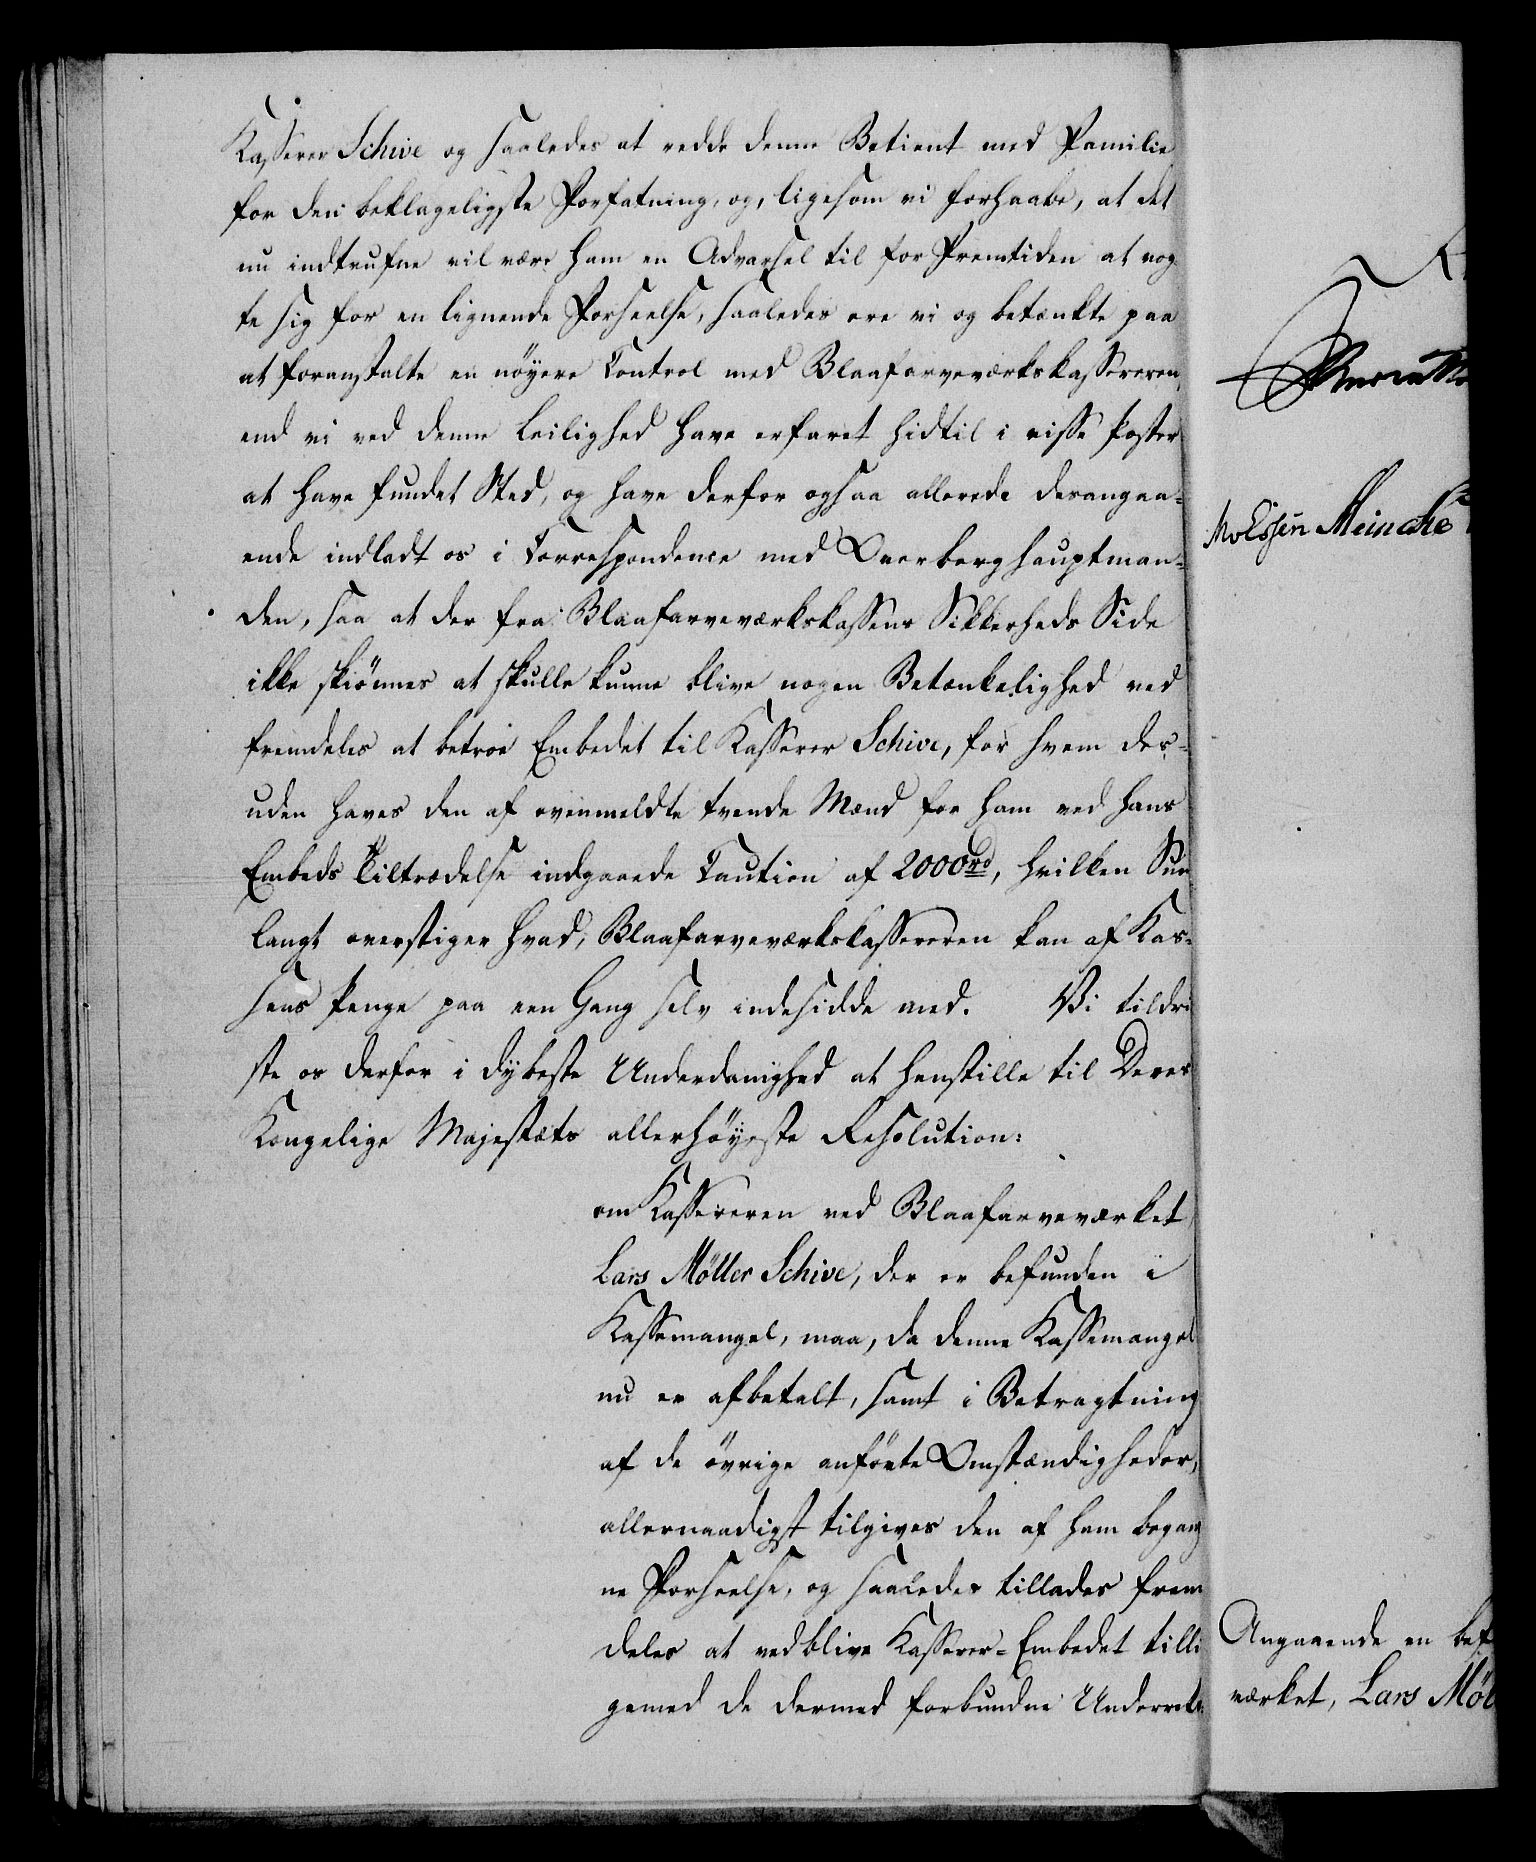 Kasserer Schive og saaledes at redde denne Betient med Familie
for den beklageligste Forfatning, og, ligesom vi forhaabe, at det
nu indtrufne vil være ham en Advarsel til for Fremtiden at vog-
te sig for en lignende Forseelse, saaledes ere vi og betænkte paa
at foranstalte en nöyere Control med Blaafarveværkskassereren,
end vi ved denne Leilighed have erfaret hidtil i visse Poster
at have fundet Sted, og have derfor ogsaa allerede derangaa-
ende indladt os i Correspondence med Overberghauptman-
den, saa at der fra Blaafarveværkskassens Sikkerheds Side
ikke skiönnes at skulle kunne blive nogen Betænkelighed ved
fremdeles at betroe Embedet til Kasserer Schive, for hvem des-
uden haves den af ovenmeldte tvende Mænd for ham ved hans
Embeds Tiltrædelse indgaaede Caution af 2000rd, hvilken Sum
langt overstiger hvad, Blaafarveværkskassereren kan af Kas-
sens Penge paa een Gang selv indesidde med. Vi tildri
ste os derfor i dybeste Underdanighed at henstille til Deres
Kongelige Majestæts allerhöyeste Resolution:
om Kassereren ved Blaafarveværket
Lars Möller Schive, der er befunden i
Kassemangel, maa, da denne Kassemangel
nu er afbetalt, samt i Betragtning
af de övrige anförte Omstændigheder,
allernaadigst tilgives den af ham begang
ne Forseelse, og saaledes tillades frem
deles at vedblive Kasserer-Embedet tilli
gemed de dermed forbundne Underrets-
Meincke
Angaaende en bef
værket, Lars Möl